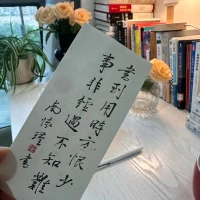 書到用時方恨少
事非經過不知難
書